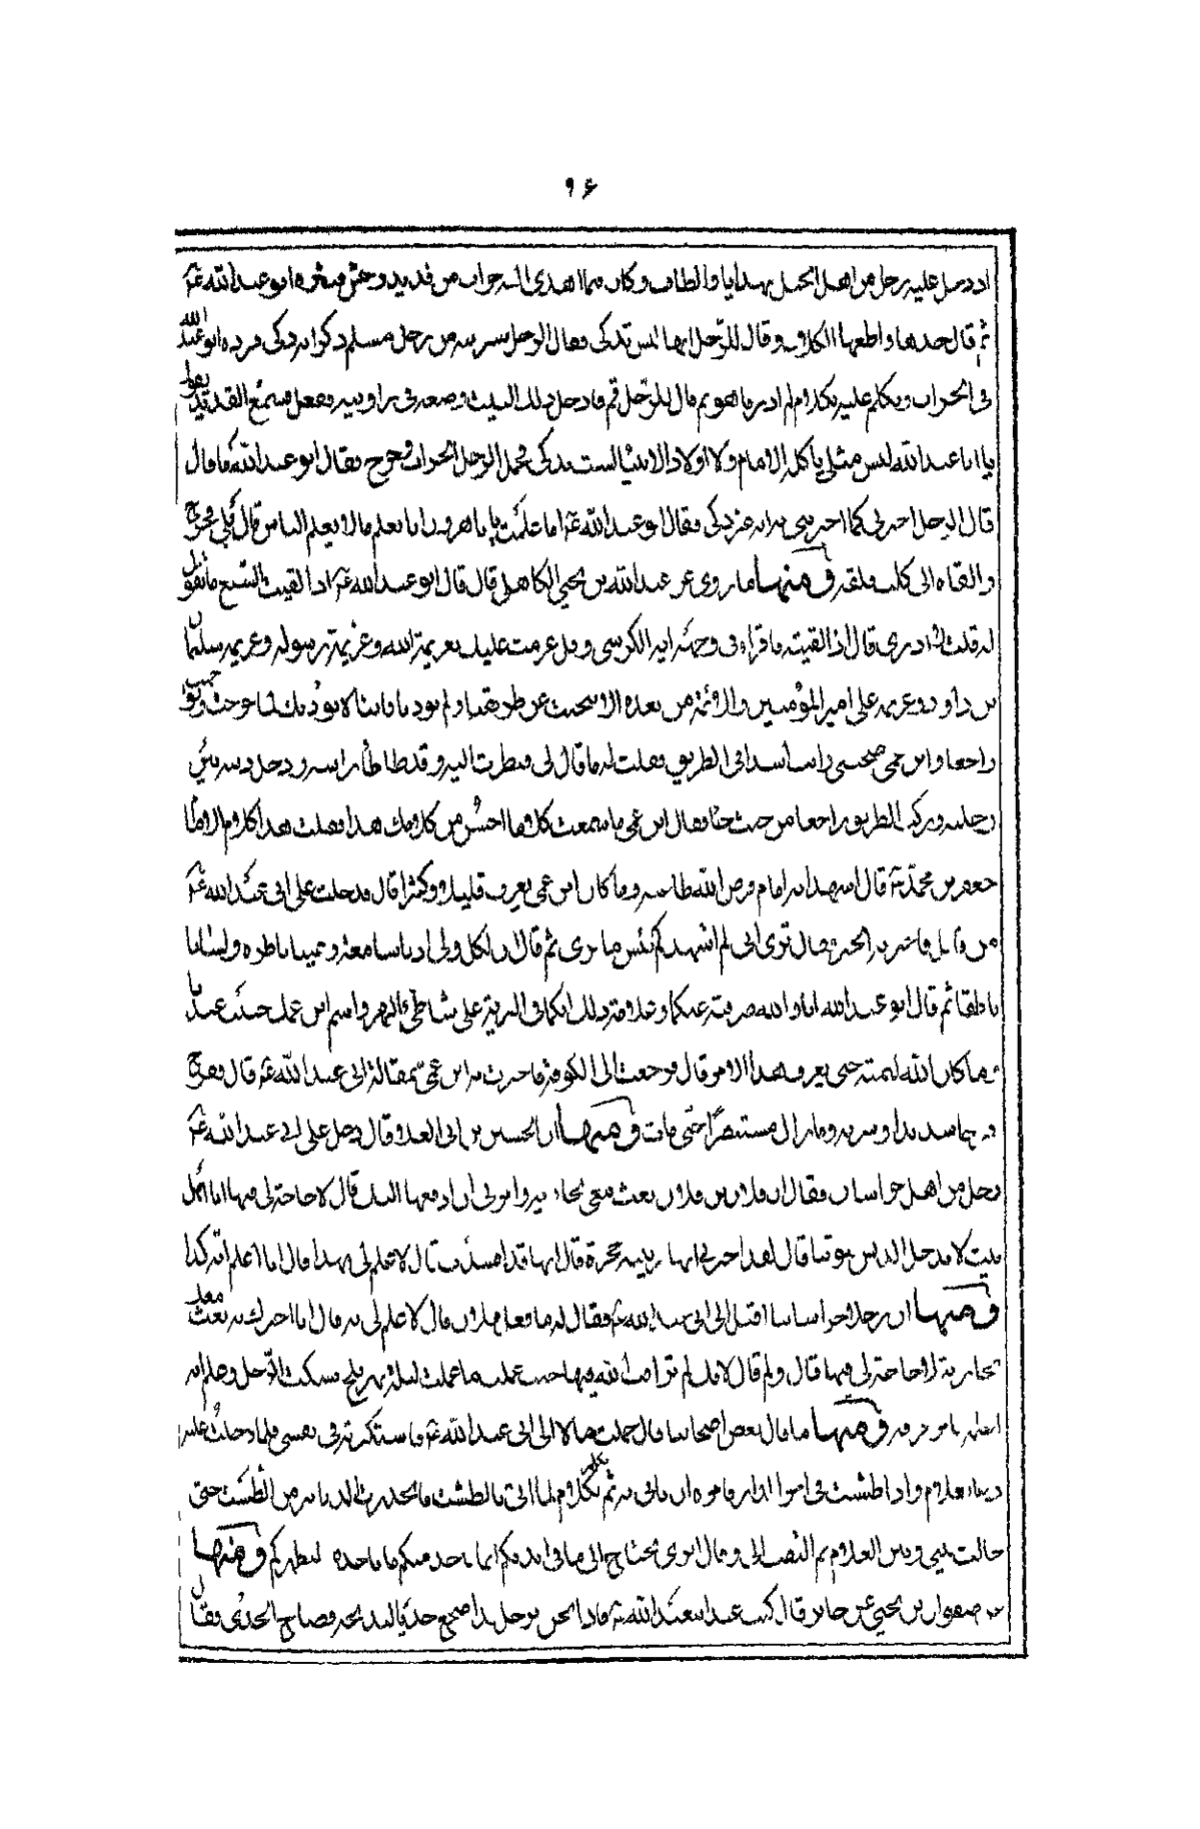 ٩۶
اذ دخل عليه رجل من اهل الجبل بهدايا والطاف وكان مما اهدى اليه جراب من قديد وحش فنثره ابو عبد الله ع
ثم قال خذها واطعمها الكلاب وقال للرجل انها ليس تذكى فقال الرجل اشريته من رجل مسلم ذكر انه ذكى فرده ابو عبد الله
فى الجراب وتكلم عليه بكلام لم ادر ما هو ثم قال للرجل قم فادخل ذلك البيت وضعه فى زاويته ففعل فسمع القديد يقول
يا ابا عبد الله ليس مثلى ياكله الامام ولا اولاد الانبيا لست بذكى فحمل الرجل الجراب وخرج فقال ابو عبد الله ع ما قال
قال الرجل اخبرنى كما اخبرتنى به انه غير ذكى فقال ابو عبد الله ع اما علمت يا با هرون انا نعلم ما لا يعلم الناس قال بلى وخرج
والقاه الى كلب فلقيه ومنها ما روى عن عبد الله بن يحيى الكاهلى قال قال ابو عبد الله ع اذا لقيت السبع ما تقول
له قلت لا ادرى قال اذا لقيته فاقراء فى وجهه اية الكرسى وقل عزمت عليك بعزيمة الله وعزيمة رسوله وعزيمة سليمان
بن داود وعزيمة على امير المؤمنين والائمة من بعده الا تنحيت عن طريقنا ولم تؤذنا فانا لا نؤذيك
راجعا وابن عمى صحبنى راينا اسدا فى الطريق فقلت له ما قال لى فنظرت اليه وقد طاطأ راسه وادخل ذنبه بين
رجليه وركب الطريق راجعا من حيث جاء فقال ابن عمى ما سمعت كلاما احسن من كلامك هذا فقلت هذا كلام الامام
جعفر بن محمد ع قال اشهد انه امام فرض الله طاعته وما كان ابن عمى يعرف قليلا وكثيرا قال فدخلت على ابى عبد الله ع
من قابل فاخبرته الخبر فقال ترى انى لم اشهدكم بئس ما ترى ثم قال ان لكل ولى اذنا سامعة وعينا ناظرة ولسانا
ناطقا ثم قال ابو عبد الله انا والله صرفته عنكما وعلامة ذلك انكما فى البرية على شاطئ النهر واسم ابن عمك عندنا
وما كان الله ليميته حتى يعرف هذا الامر قال فرجعت الى الكوفة فاخبرت ابن عمى بمقالة ابى عبد الله ع قال ففرح
به سرورا شديدا وما زال مستبصرا حتى مات ومنها ان الحسين بن ابى العلا قال دخل على ابى عبد الله ع
رجل من اهل خراسان فقال ان فلان بن فلان بعث معى بجارية وامرنى ان ادفعها اليك قال لا حاجة لى فيها انا اهل
بيت لا تدخل الدنس بيوتنا قال لقد اخبرنى انها ربيبة حجره قال انها قد افسدت قال لا علم لى بهذا قال انا اعلم انه كذا
ومنها ان رجلا خراسانيا اقبل الى ابى عبد الله ع فقال له ما فعل فلان قال لا علم لى به قال انا اخبرك به بعث معك
بجارية لا حاجة لى فيها قال ولم قال لانك لم تراقب الله فيها حيث عملت ما عملت ليلة نهر بلخ فسكت الرجل وعلم انه
اعلم بامر عرفه ومنها ما قال بعض اصحابنا قال حملت مالا الى ابى عبد الله ع فاستكثرته فى نفسى فلما دخلت عليه
دعا بغلام واذا طشت فى اخر الدار فامره ان ياتى به ثم تكلم بكلام لما اتى بالطشت فانحدرت الدنانير من الطشت حتى
حالت بينى وبين الغلام ثم التفت الى وقال اترى نحتاج الى ما فى ايديكم انما ناخذ منكم ما ناخذ لنطهركم ومنها
عن صفوان بن يحيى عن جابر قال كنت عند ابى عبد الله ع فاذا نحن برجل اضجع جديا ليذبحه فصاح الجدى فقال